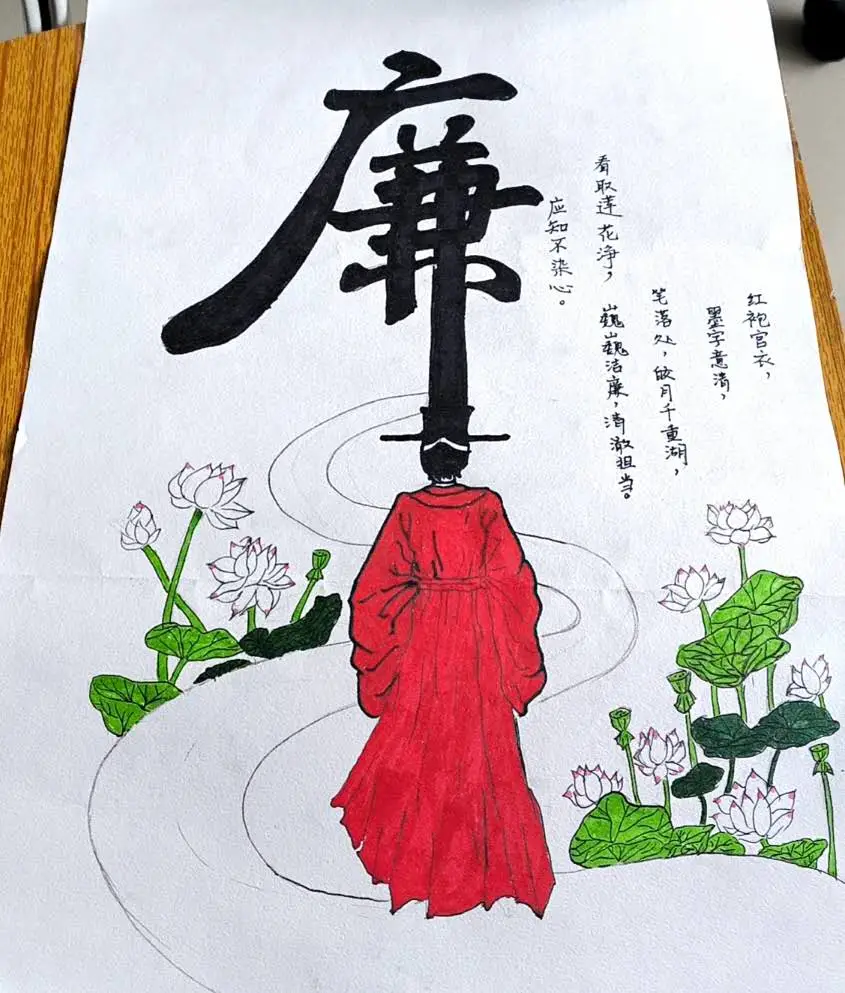 廉
看取莲花净，
应知不染心。
红袍宫衣，
墨字意清，
笔落处，皎月千重湖，
巍巍洁廉，清澈担当。